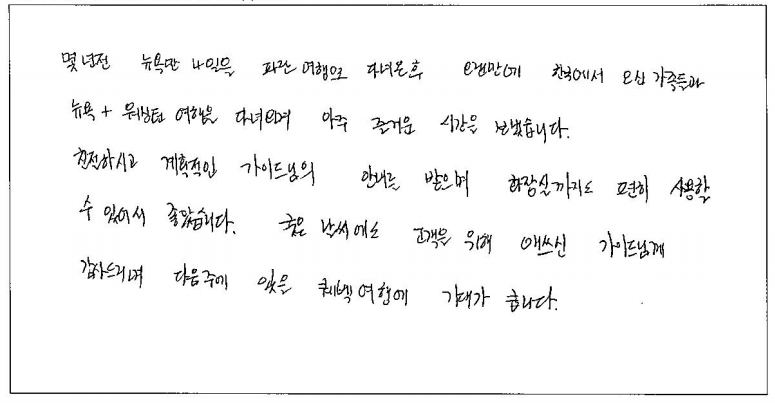 몇 년전 뉴욕만 4일을 파란여행으로 다녀온 후 오랜만에 한국에서 오신 가족들과
뉴욕 + 워싱턴 여행을 다녀오며 아주 즐거운 시간을 보냈습니다.
친절하시고 계획적인 가이드님의 안내를 받으며 화장실까지도 편히 사용할
수 있어서 좋았습니다. 궂은 날씨에도 고객을 위해 애쓰신 가이드님께
감사드리며 다음주에 있을 퀘벡여행에 기대가 큽니다.